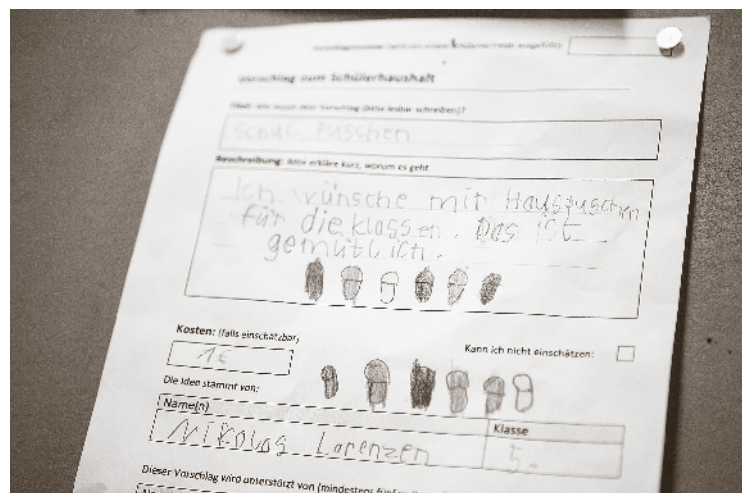 Vorschlag zum Schülerhaushalt
Titel: Wie lautet dein Vorschlag (bitte lesbar schreiben)?
Schul Puschen
Beschreibung: Bitte erkläre kurz, worum es geht
Ich wünsche mit Hauspuschen
für die klassen. Das ist
gemütlich.
Kosten: (falls einschätzbar)
Kann ich nicht einschätzen:
1€
Die Idee stammt von:
Name(n)
Klasse
Nikolas Lorenzen
5.
Dieser Vorschlag wird unterstützt von (mindestens fünf